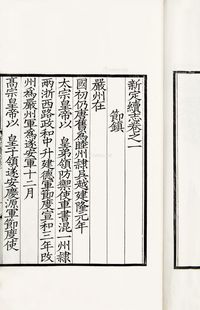 新定續志卷之一
節鎮
嚴州在
國初仍唐舊為睦州隸吳越建隆元年
太宗皇帝以 皇弟領防禦使車書混一州隸
兩浙西路政和中升建德軍節度宣和三年改
州為嚴州軍為遂安軍十二月
高宗皇帝以 皇子領遂安慶源軍節度使